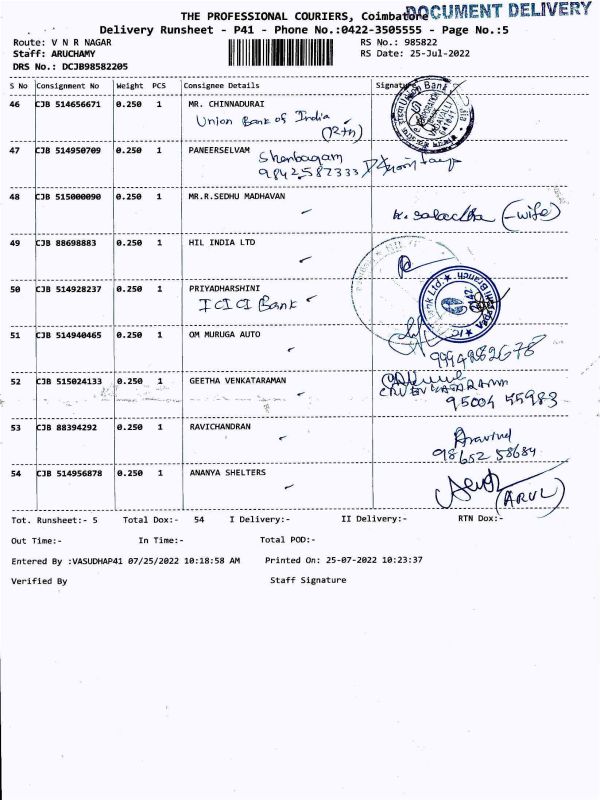 THE PROFESSIONAL COURIERS, Coimbatore DOCUMENT DELIVERY
Delivery Runsheet - P41 - Phone No.:0422-3505555 - Page No.:5
Route: V N R NAGAR RS No.: 985822
Staff: ARUCHAMY RS Date: 25-Jul-2022
DRS No.: DCJB98582205
S No Consignment No Weight PCS Consignee Details Signature
46 CJB 514656671 0.250 1 MR. CHINNADURAI
Union Bank of India
47 CJB 514950709 0.250 1 PANEERSELVAM
Shenbagam
9842587333
48 CJB 515000090 0.250 1 MR.R.SEDHU MADHAVAN
(-wife)
49 CJB 88698883 0.250 1 HIL INDIA LTD
50 CJB 514928237 0.250 1 PRIYADHARSHINI
ICICI Bank
51 CJB 514940465 0.250 1 OM MURUGA AUTO
9994982678
52 CJB 515024133 0.250 1 GEETHA VENKATARAMAN
95004 45983
53 CJB 88394292 0.250 1 RAVICHANDRAN
Aravind
98652 58684
54 CJB 514956878 0.250 1 ANANYA SHELTERS
(ARUL)
Tot. Runsheet:- 5 Total Dox:- 54 I Delivery:- II Delivery:- RTN Dox:-
Out Time:- In Time:- Total POD:-
Entered By :VASUDHAP41 07/25/2022 10:18:58 AM Printed On: 25-07-2022 10:23:37
Verified By Staff Signature